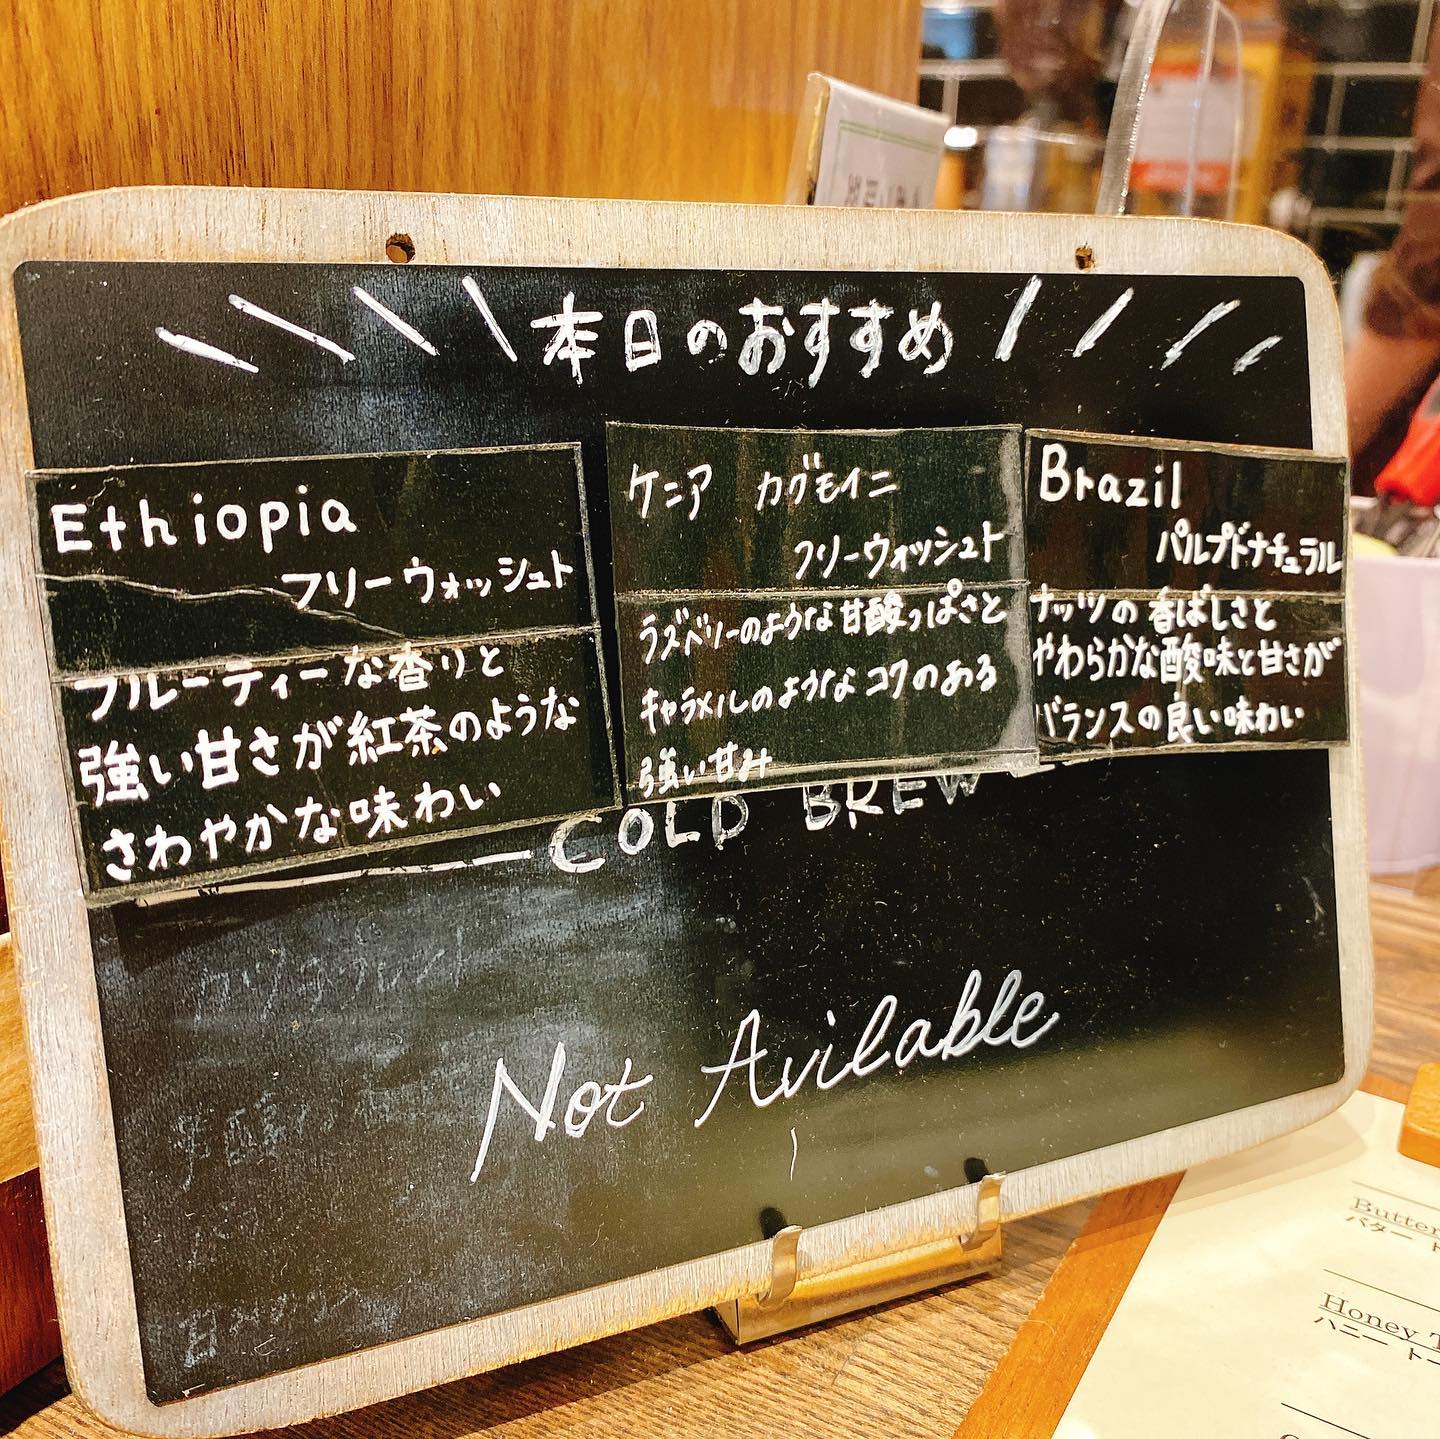 本日のおすすめ
Ethiopia
フリーウォッシュト
フルーティーな香りと
強い甘さが紅茶のような
さわやかな味わい
ケニア カグモイニ
フリーウォッシュト
ラズベリーのような甘酸っぱさと
キャラメルのようなコクのある
強い甘み
Brazil
パルプドナチュラル
ナッツの香ばしさと
やわらかな酸味と甘さが
バランスの良い味わい
COLD BREW
Not Avilable
Butter
バター ト
Honey T
ハニー トー